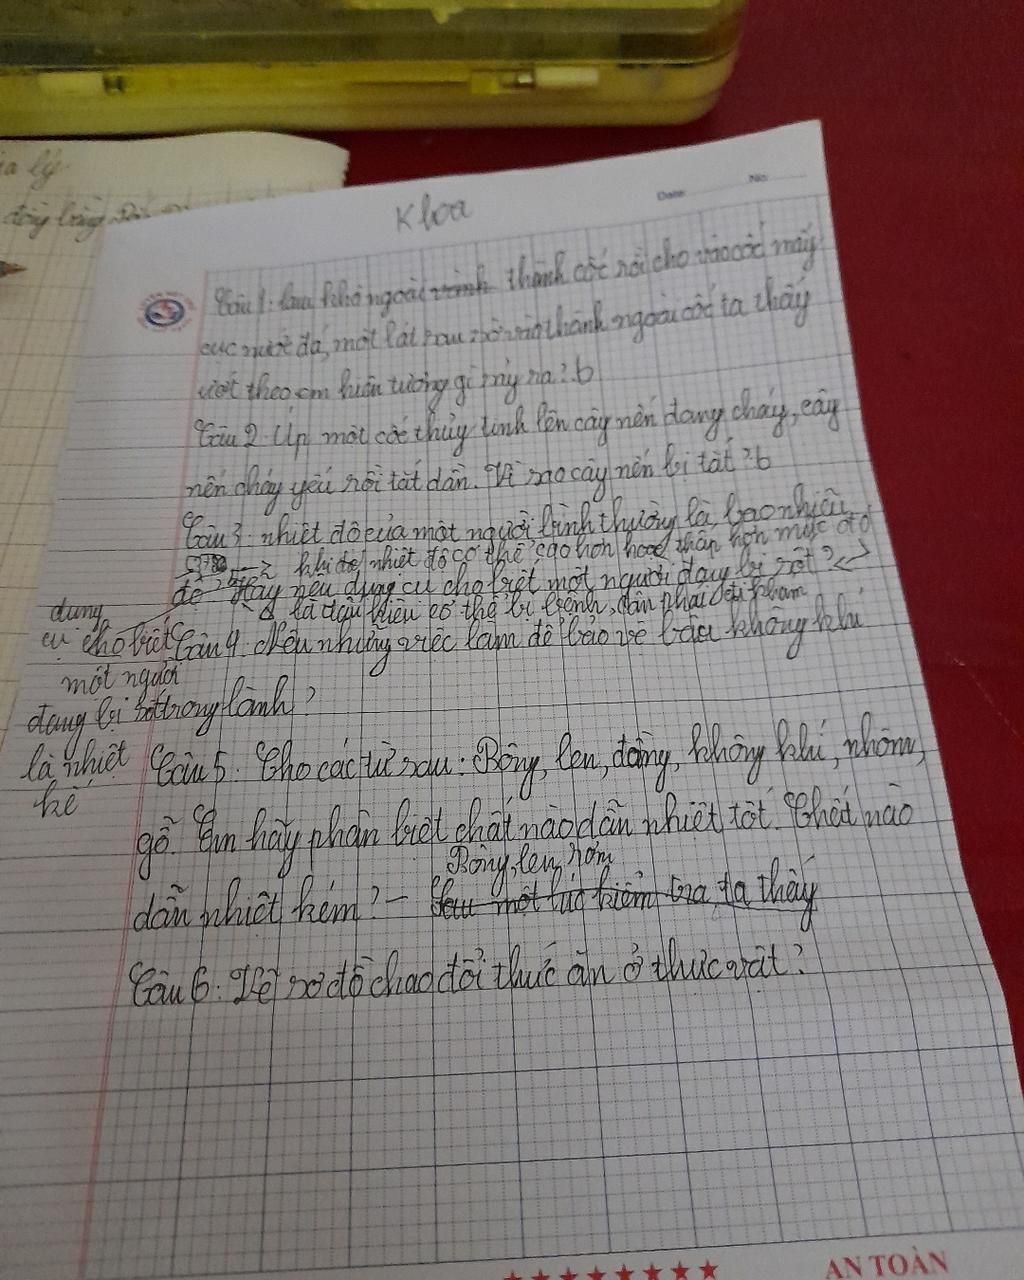 ia lý
đồng bằng
Khoa
Date No
Câu 1: lau khô ngoài thành cốc rồi cho vào cốc mấy
cục nước đá, một lát sau sờ vào thành ngoài cốc ta thấy
ướt theo em hiện tượng gì xảy ra? b
Câu 2. Úp một cốc thủy tinh lên cây nến đang cháy, cây
nến cháy yếu rồi tắt dần. Vì sao cây nến bị tắt? b
Câu 3: nhiệt độ của một người bình thường là bao nhiêu
khi nhiệt độ có thể cao hơn hoặc thấp hơn mức đó
độ Hãy nêu dụng cụ cho biết một người đang bị sốt?
là dấu hiệu cơ thể bị bệnh, cần phải đi khám
dụng
cụ cho biết Câu 4. Nêu những việc làm để bảo vệ bầu không khí
một người
đang bị sốt trong lành?
là nhiệt Câu 5. Cho các từ sau: Bông, len, đồng, không khí, nhôm,
kế
gỗ. Em hãy phân biệt chất nào dẫn nhiệt tốt. Chất nào
Bông, len, rơm
dẫn nhiệt kém? - Sau một lúc kiểm tra ta thấy
Câu 6: Vẽ sơ đồ chao đổi thức ăn ở thực vật?
AN TOÀN